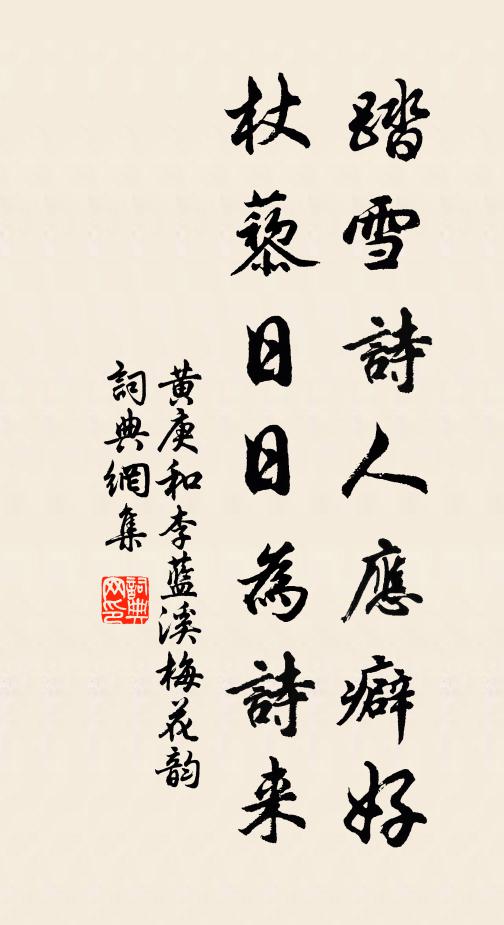 踏雪詩人應癖好
杖藜日日為詩来
黄庚和李藍溪梅花韵
詞典網集
詞典網印